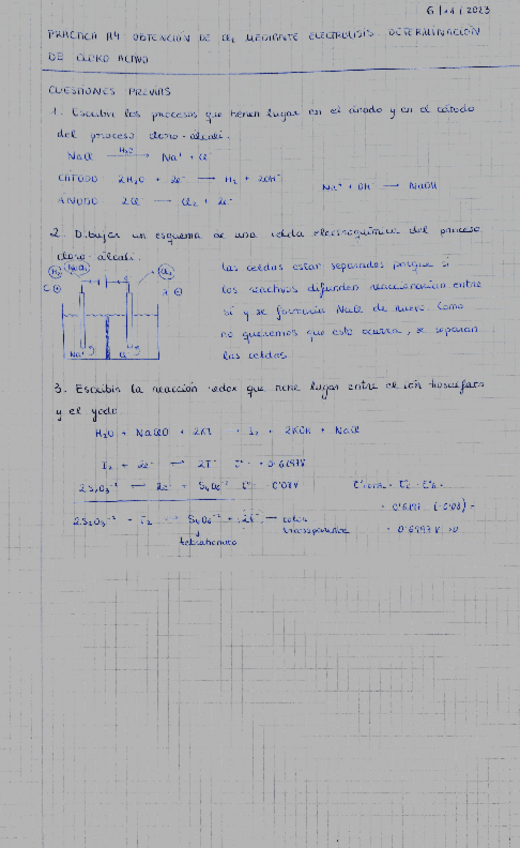 6/11/2023
PRÁCTICA 14 OBTENCIÓN DE Cl₂ MEDIANTE ELECTROLISIS. DETERMINACIÓN
DE CLORO ACTIVO
CUESTIONES PREVIAS
1. Escribir los procesos que tienen lugar en el ánodo y en el cátodo
del proceso cloro-álcali.
NaCl —H₂O→ Na⁺ + Cl⁻
CÁTODO 2H₂O + 2e⁻ → H₂ + 2OH⁻
Na⁺ + OH⁻ → NaOH
ÁNODO 2Cl⁻ → Cl₂ + 2e⁻
2. Dibujar un esquema de una celda electroquímica del proceso
cloro-álcali.
H₂ Cl₂
C ⊖ A ⊕
Na⁺ Cl⁻
Las celdas estan separadas porque si
los reactivos difunden reaccionarían entre
sí y se formaría NaCl de nuevo. Como
no queremos que esto ocurra, se separan
las celdas.
3. Escribir la reacción redox que tiene lugar entre el ión tiosulfato
y el yodo
H₂O + NaClO + 2KI → I₂ + 2KOH + NaCl
I₂ + 2e⁻ → 2I⁻
2S₂O₃⁻² → 2e⁻ + S₄O₆⁻²
2S₂O₃⁻² + I₂ → S₄O₆⁻² + 2I⁻ → color
transparente
tetrationato